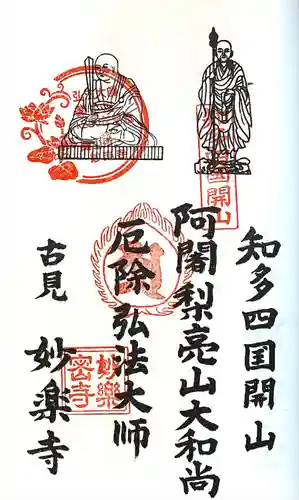 知多四国開山
阿闍梨亮山大和尚
厄除弘法大師
古見
妙楽寺
国開山
妙樂
密寺